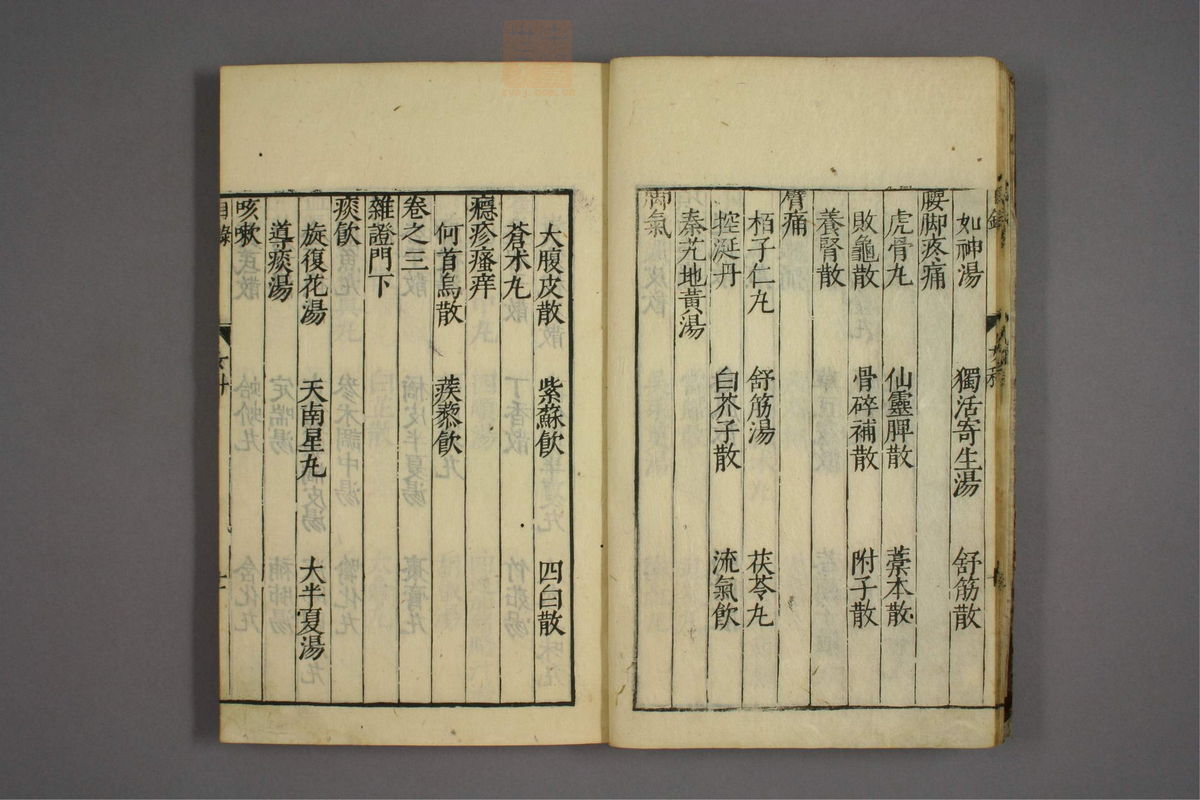 如神湯 獨活寄生湯 舒筋散
腰脚疼痛
虎骨丸 仙靈脾散 藁本散
敗龜散 骨碎補散 附子散
養腎散
臂痛
栢子仁丸 舒筋湯 茯苓丸
控涎丹 白芥子散 流氣飲
秦艽地黄湯
脚氣
大腹皮散 紫蘇飲 四白散
蒼朮丸
癮疹瘙痒
何首烏散 蒺蔾飲
卷之三
雜證門下
痰飲
旋復花湯 天南星丸 大半夏湯
導痰湯
咳嗽
目錄
女科